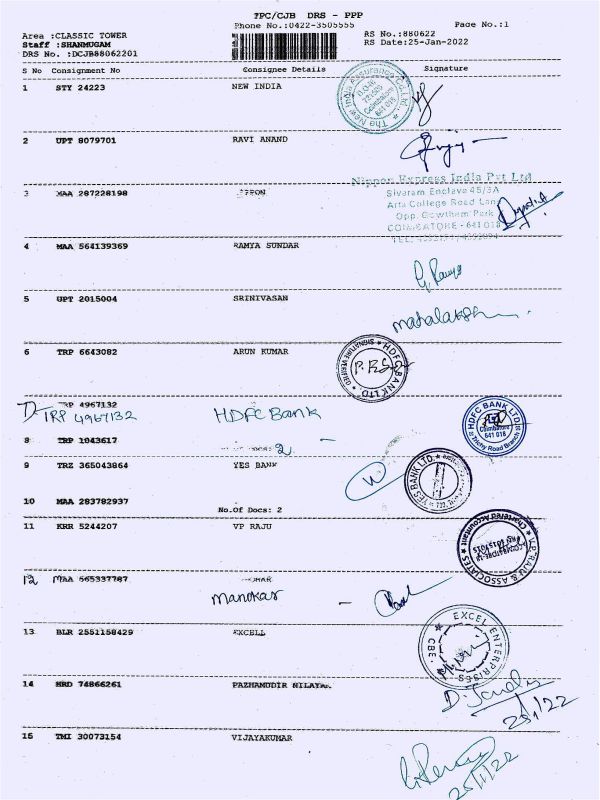 TPC/CJB DRS - PPP
Phone No.:0422-3505555 Page No.:1
Area :CLASSIC TOWER RS No.:880622
Staff :SHANMUGAM RS Date:25-Jan-2022
DRS No. :DCJB88062201
S No Consignment No Consignee Details Signature
1 STY 24223 NEW INDIA
The New India Assurance Co. Ltd.
Coimbatore
641 018
2 UPT 8079701 RAVI ANAND
Nippon Express India Pvt Ltd
3 MAA 287228198
Sivaram Enclave 45/3A
Arts College Road Lane
Opp. Gowtham Park
COIMBATORE - 641 018
4 MAA 564139369 RAMYA SUNDAR
G. Ramya
5 UPT 2015004 SRINIVASAN
Mahalakshmi
6 TRP 6643082 ARUN KUMAR
HDFC BANK LTD.
TRP 4967132
TRP 4967132 HDFC Bank
HDFC BANK LTD
Coimbatore
641 018
Trichy Road Branch
8 TRP 1043617 2 -
9 TRZ 365043864 YES BANK
YES BANK LTD.
10 MAA 283782937
No.Of Docs: 2
11 KRR 5244207 VP RAJU
V.P. RAJU & ASSOCIATES
Chartered Accountant
12 MAA 565337787
Manohar -
13 BLR 2551158429 EXCELL
EXCEL ENTERPRISES
CBE.
14 HRD 74866261 PAZHAMUDIR NILAYAM
25/1/22
15 TMI 30073154 VIJAYAKUMAR
25/1/22